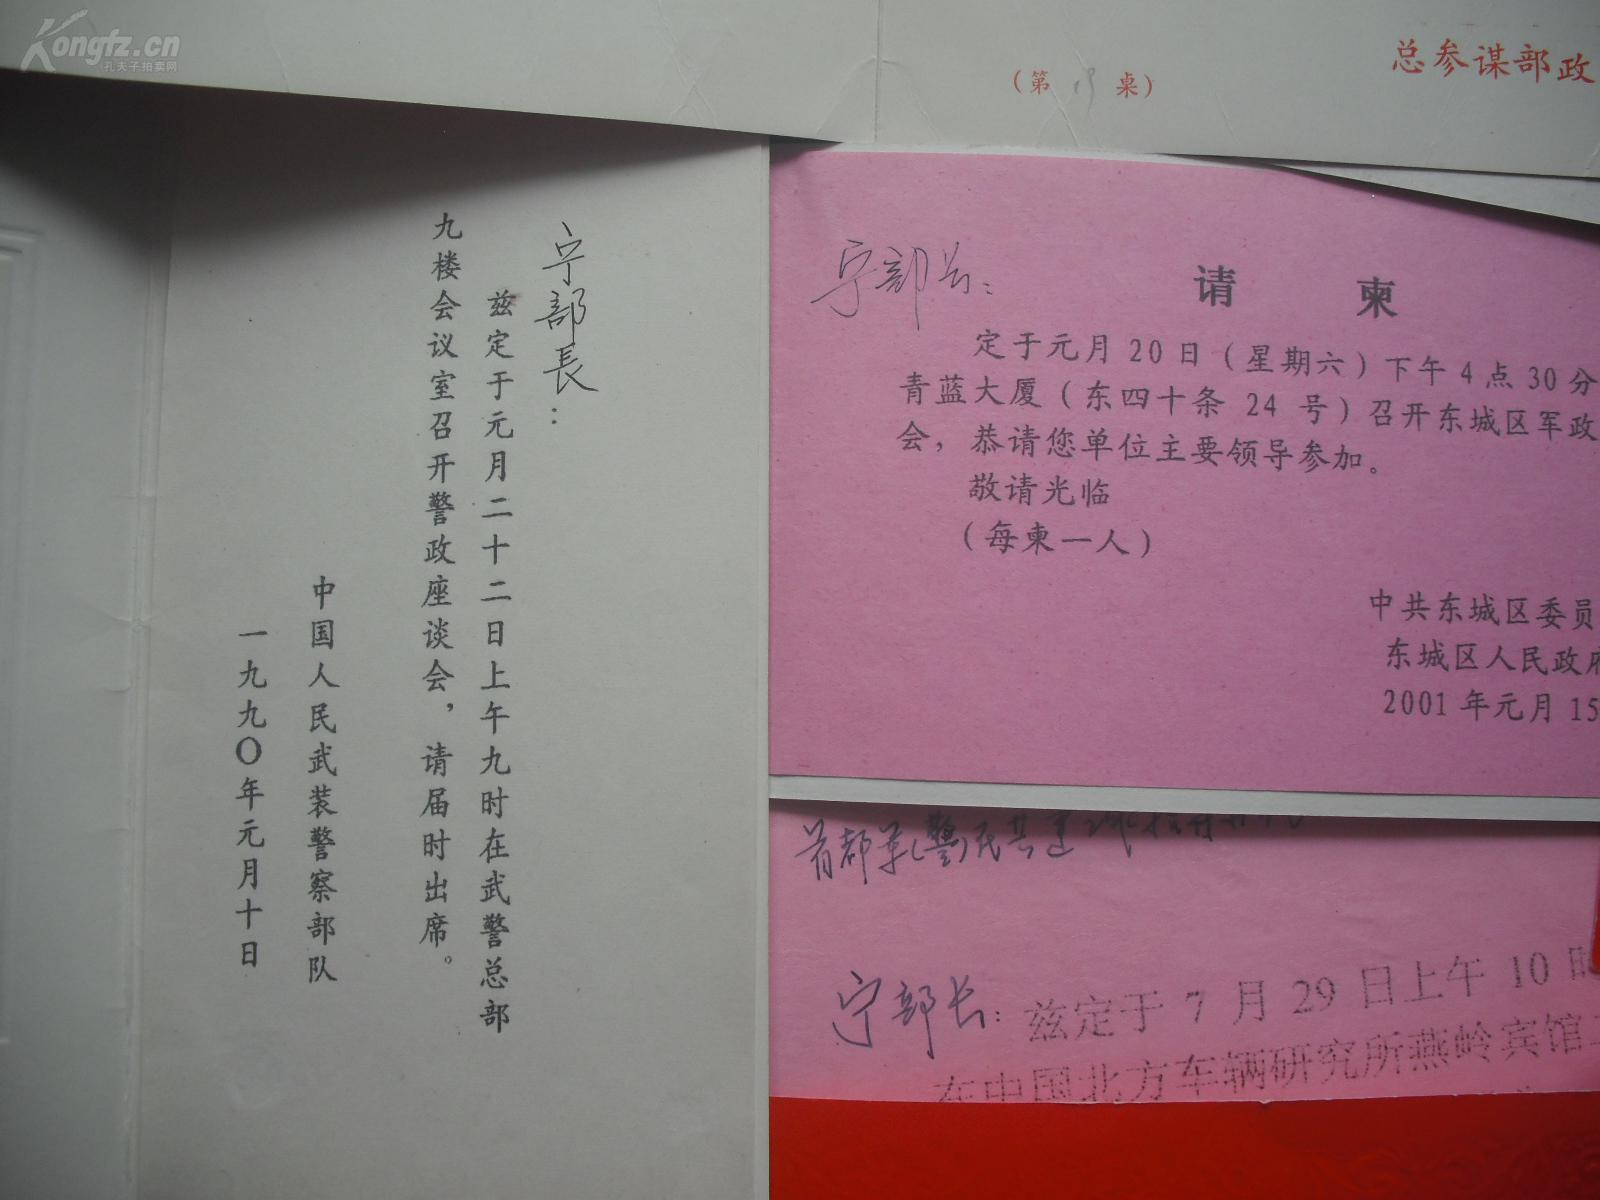 Kongfz.cn
孔夫子拍卖网
总参谋部政
（第19桌）
宁部長：
兹定于元月二十二日上午九时在武警总部
九楼会议室召开警政座谈会，请届时出席。
中国人民武装警察部队
一九九〇年元月十日
请柬
宁部长：
定于元月20日（星期六）下午4点30分
青蓝大厦（东四十条24号）召开东城区军政
会，恭请您单位主要领导参加。
敬请光临
（每柬一人）
中共东城区委员
东城区人民政府
2001年元月15
首都军(警)民共建
宁部长：兹定于7月29日上午10时
在中国北方车辆研究所燕岭宾馆